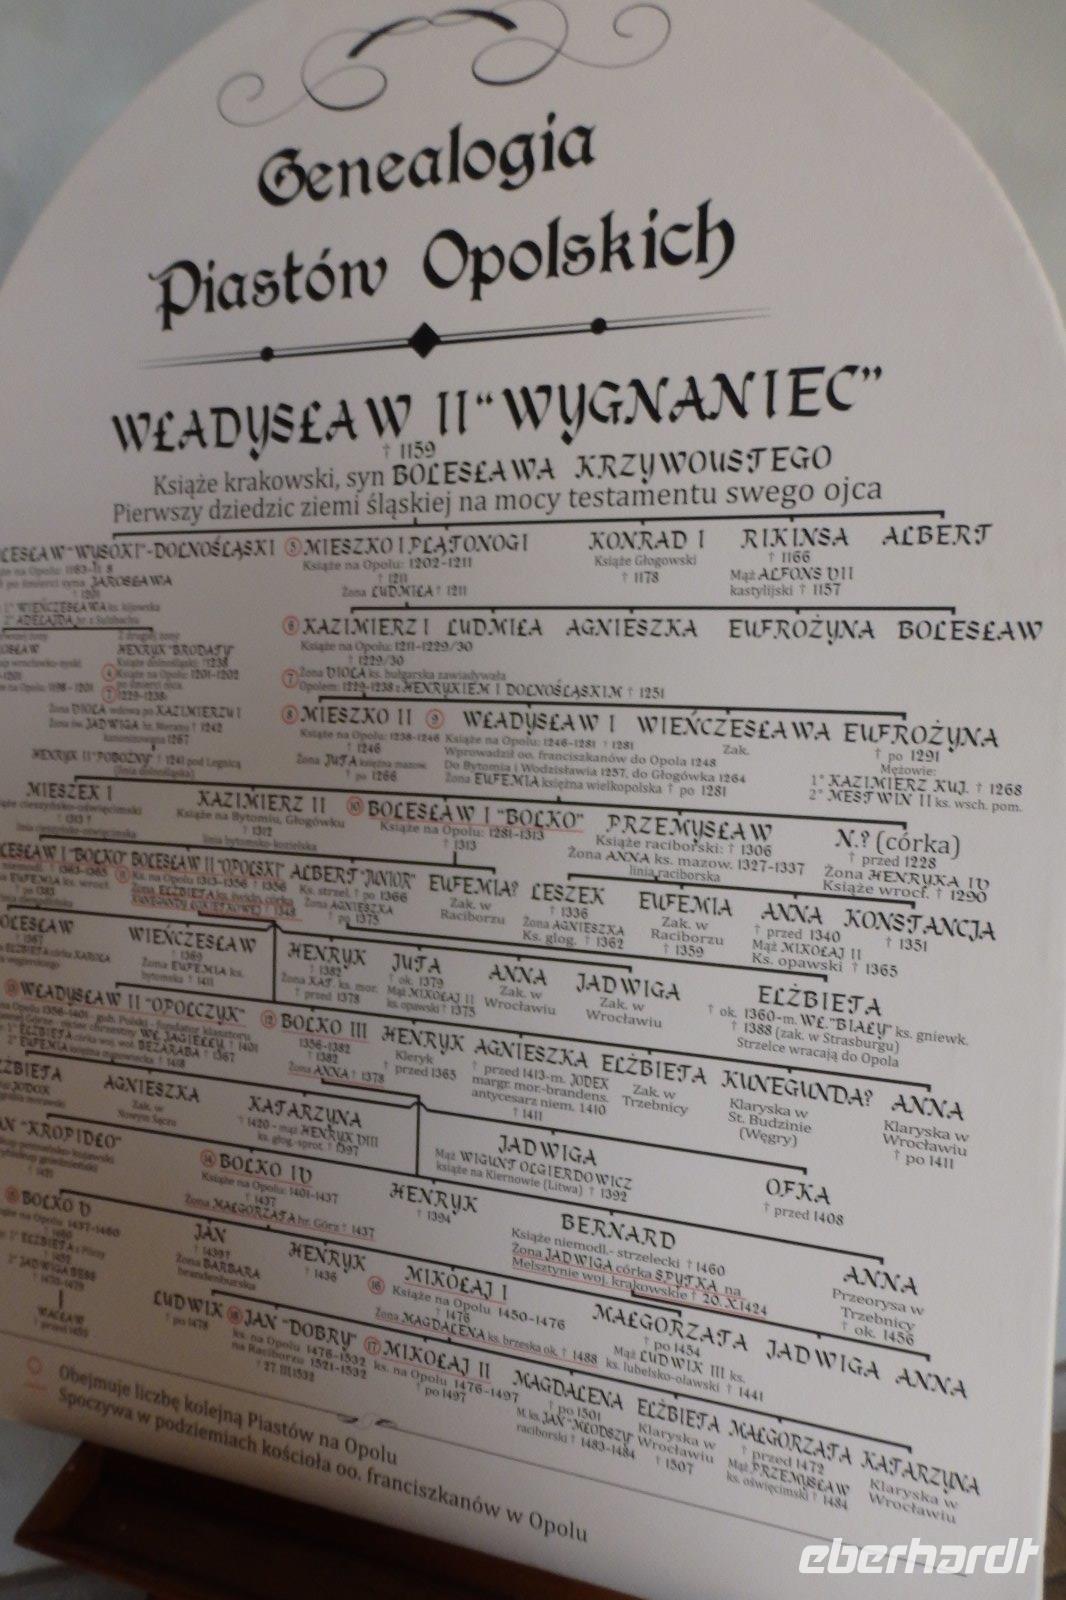 Genealogia
Piastów Opolskich
WŁADYSŁAW II "WYGNANIEC"
† 1159
Książe krakowski, syn BOLESŁAWA KRZYWOUSTEGO
Pierwszy dziedzic ziemi śląskiej na mocy testamentu swego ojca
"WYSOKI"-DOLNOŚLĄSKI 5 MIESZKO I PLĄTONOGI KONRAD I RIKINSA ALBERT
Książe na Opolu: 1202-1211 Książe Głogowski † 1166
† 1211 † 1178 Mąż ALFONS VII
Żona LUDMIŁA † 1211 kastylijski † 1157
6 KAZIMIERZ I LUDMIŁA AGNIESZKA EUFROŻYNA BOLESŁAW
Książe na Opolu: 1211-1229/30
† 1229/30
7 Żona VIOLA ks. bułgarska zawiadywała
Opolem: 1229-1238 z HENRYKIEM I DOLNOŚLĄSKIM † 1251
HENRYK "BRODATY"
Książe dolnośląski † 1238
4 Książe na Opolu: 1201-1202
po śmierci ojca
7 1229-1238
Żona VIOLA wdowa po KAZIMIERZU I
Żona św. JADWIGA hr. Meranu † 1242
kanonizowana 1267
HENRYK II "POBOŻNY" † 1241 pod Legnicą
(linia dolnośląska)
8 MIESZKO II 9 WŁADYSŁAW I WIEŃCZESŁAWA EUFROŻYNA
Książe na Opolu: 1238-1246 Książe na Opolu: 1246-1281 † 1281 Zak. † po 1291
† 1246 Wprowadził oo. franciszkanów do Opola 1248 Mężowie:
Żona JUTA księżna mazow. Do Bytomia i Wodzisławia 1257, do Głogówka 1264 1° KAZIMIERZ KUJ. † 1268
† po 1266 Żona EUFEMIA księżna wielkopolska † po 1281 2° MESTWIN II ks. wsch. pom.
MIESZEK I KAZIMIERZ II 10 BOLESŁAW I "BOLKO" PRZEMYSŁAW N.? (córka)
cieszyńsko-oświęcimski Książe na Bytomiu, Głogówku Książe na Opolu: 1281-1313 Książe raciborski: † 1306 † przed 1228
† 1312 † 1313 Żona ANNA ks. mazow. 1327-1337 Żona HENRYKA IV
linia bytomsko-kozielska linia raciborska Książe wrocł. † 1290
BOLESŁAW II "OPOLSKI" ALBERT "JUNIOR" EUFEMIA? LESZEK EUFEMIA ANNA KONSTANCJA
11 Ks. na Opolu 1313-1356 † 1356 Ks. strzel. † po 1366 Zak. w † 1336 Zak. w † przed 1340 † 1351
Żona ELŻBIETA ks. świdn. córka Żona AGNIESZKA Raciborzu Żona AGNIESZKA Raciborzu Mąż MIKOŁAJ II
† 1348 † po 1375 Ks. głog. † 1362 † 1359 Ks. opawski † 1365
WIEŃCZESŁAW HENRYK JUTA ANNA JADWIGA ELŻBIETA
† 1369 † 1382 † ok. 1379 Zak. w Zak. w † ok. 1360-m. WŁ. "BIAŁY" ks. gniewk.
Żona EUFEMIA ks. Żona KAT. ks. mor. Mąż MIKOŁAJ II Wrocławiu Wrocławiu † 1388 (zak. w Strasburgu)
bytomska † 1411 † przed 1378 ks. opawski † 1375 Strzelce wracają do Opola
WŁADYSŁAW II "OPOLCZYK" 12 BOLKO III HENRYK AGNIESZKA ELŻBIETA KUNEGUNDA? ANNA
1356-1382 Kleryk † przed 1413-m. JODEX Zak. w Klaryska w Klaryska w
† 1382 † przed 1365 margr. mor.-brandens. Trzebnicy St. Budzinie Wrocławiu
Żona ANNA † 1378 antycesarz niem. 1410 (Węgry) † po 1411
† 1411
AGNIESZKA KATARZYNA JADWIGA OFKA
Zak. w † 1420 - mąż HENRYK VIII Mąż WIGUNT OLGIERDOWICZ † przed 1408
Nowym Sączu ks. głog.-sprot. † 1397 książe na Kiernowie (Litwa) † 1392
"KROPIDŁO" 14 BOLKO IV HENRYK BERNARD ANNA
Książe na Opolu: 1401-1437 † 1394 Książe niemodl.- strzelecki † 1460 Przeorysa w
† 1437 Żona JADWIGA córka SPYTKA na Trzebnicy
Żona MAŁGORZATA hr. Görz † 1437 Melsztynie woj. krakowskie † 20.X.1424 † ok. 1456
BOLKO V JAN HENRYK 16 MIKOŁAJ I MAŁGORZATA JADWIGA ANNA
na Opolu 1437-1460 † 1439? † 1436 Książe na Opolu 1450-1476 † po 1454
Żona BARBARA † 1476 Mąż LUDWIK III ks.
brandenburska Żona MAGDALENA ks. brzeska ok. † 1488 ks. lubelsko-oławski † 1441
WACŁAW
LUDWIK JAN "DOBRY" 17 MIKOŁAJ II MAGDALENA ELŻBIETA MAŁGORZATA KATARZYNA
† po 1478 ks. na Opolu 1476-1532 ks. na Opolu 1476-1497 † po 1501 Klaryska w † przed 1472 Klaryska w
na Raciborzu 1521-1532 † po 1497 M. ks. JAN "MŁODSZY" Wrocławiu Mąż PRZEMYSŁAW Wrocławiu
† 27.III 1532 raciborski † 1483-1484 † 1507 ks. oświęcimski † 1484
Obejmuje liczbę kolejną Piastów na Opolu
Spoczywa w podziemiach kościoła oo. franciszkanów w Opolu
eberhardt